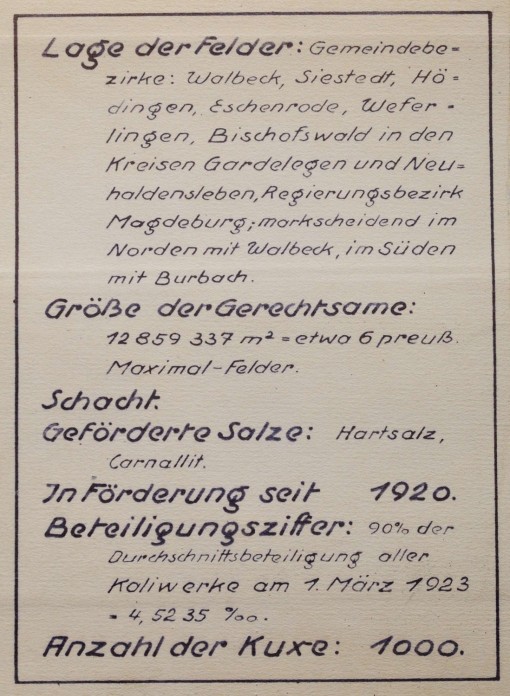 Lage der Felder: Gemeindebe=
zirke: Walbeck, Siestedt, Hö=
dingen, Eschenrode, Wefer-
lingen, Bischofswald in den
Kreisen Gardelegen und Neu=
haldensleben, Regierungsbezirk
Magdeburg; markscheidend im
Norden mit Walbeck, im Süden
mit Burbach.
Größe der Gerechtsame:
12 859 337 m² = etwa 6 preuß.
Maximal-Felder.
Schacht.
Geförderte Salze: Hartsalz,
Carnallit.
In Förderung seit 1920.
Beteiligungsziffer: 90% der
Durchschnittsbeteiligung aller
Kaliwerke am 1. März 1923
= 4,5235 ‰.
Anzahl der Kuxe: 1000.